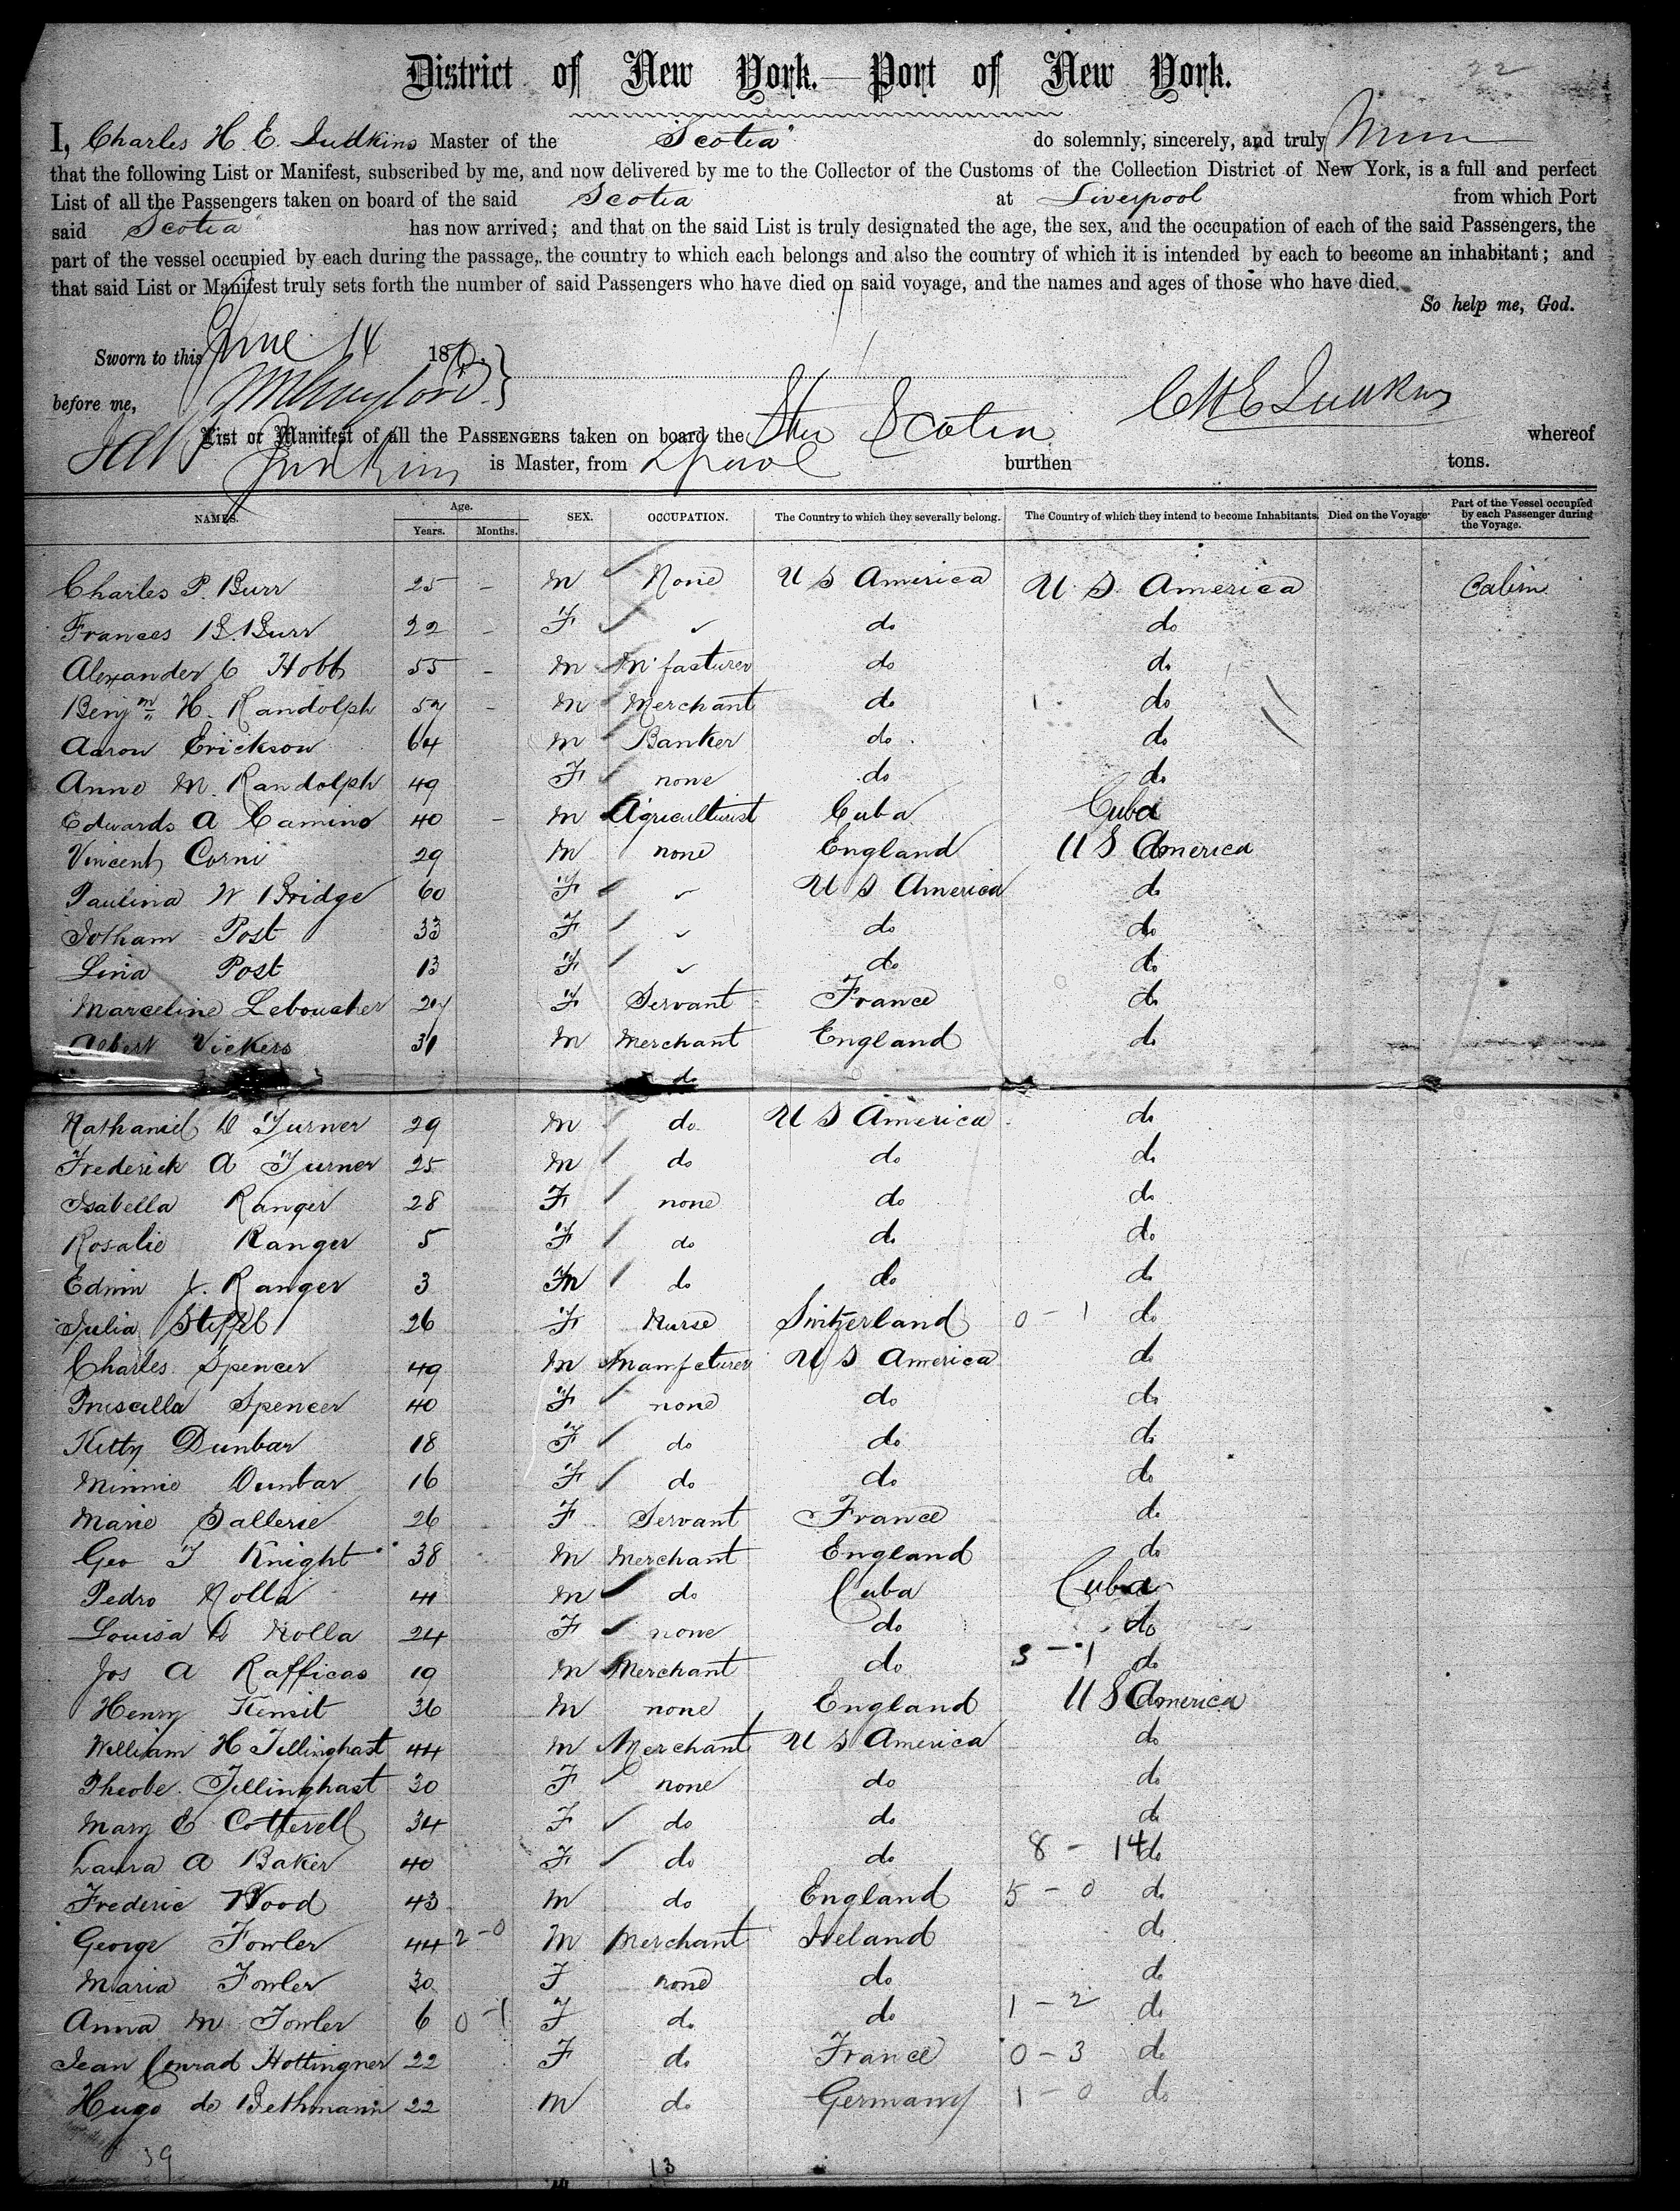 22
District of New York.—Port of New York.
I, Charles H. E. Judkins Master of the "Scotia" do solemnly, sincerely, and truly
that the following List or Manifest, subscribed by me, and now delivered by me to the Collector of the Customs of the Collection District of New York, is a full and perfect
List of all the Passengers taken on board of the said Scotia at Liverpool from which Port
said Scotia has now arrived; and that on the said List is truly designated the age, the sex, and the occupation of each of the said Passengers, the
part of the vessel occupied by each during the passage, the country to which each belongs and also the country of which it is intended by each to become an inhabitant; and
that said List or Manifest truly sets forth the number of said Passengers who have died on said voyage, and the names and ages of those who have died.
So help me, God.
Sworn to this June 14 187
before me, CHE Judkins
List or Manifest of all the PASSENGERS taken on board the Str Scotia whereof
Judkins is Master, from Lpool burthen tons.
NAMES. Age. Years. Months. SEX. OCCUPATION. The Country to which they severally belong. The Country of which they intend to become Inhabitants. Died on the Voyage Part of the Vessel occupied by each Passenger during the Voyage.
Charles P. Burr 25 - M None U S America U S America Cabin
Frances B. Burr 22 - F ✓ do do
Alexander C Hobb 55 - M M'facturer do do
Benjm H. Randolph 52 - M Merchant do 1 do
Aaron Erickson 64 M Banker do do
Anne M. Randolph 49 F none do do
Edwards A Camino 40 - M Agriculturist Cuba Cuba
Vincent Corni 29 M none England U S America
Paulina W Bridge 60 F ✓ U S America do
Jotham Post 33 F ✓ do do
Lina Post 13 F ✓ do do
Marceline Leboucher 27 F Servant France do
Albert Vickers 31 M Merchant England do
do
Nathaniel D Turner 29 M do U S America do
Frederick A Turner 25 M do do do
Isabella Ranger 28 F none do do
Rosalie Ranger 5 F do do do
Edwin J. Ranger 3 M do do do
Julia Steffel 26 F Nurse Switzerland 0 - 1 do
Charles Spencer 49 M Manfcturer U S America do
Priscilla Spencer 40 F none do do
Kitty Dunbar 18 F do do do
Minnie Dunbar 16 F do do do
Marie Sallerie 26 F Servant France do
Geo T Knight 38 M Merchant England do
Pedro Nolla 41 M do Cuba Cuba
Louisa D Nolla 24 F none do do
Jos A Rafficas 19 M Merchant do 3 - 1 do
Henry Kensit 36 M none England U S America
William H Tillinghast 44 M Merchant U S America do
Pheobe Tellinghast 30 F none do do
Mary E Cotterell 34 F do do do
Laura A Baker 40 F do do 8 - 14 do
Frederic Wood 43 M do England 5 - 0 do
George Fowler 44 2 - 0 M Merchant Ireland do
Maria Fowler 30 F none do do
Anna M Fowler 6 0 - 1 F do do 1 - 2 do
Jean Conrad Hottingner 22 F do France 0 - 3 do
Hugo de Bethmann 22 M do Germany 1 - 0 do
39 13